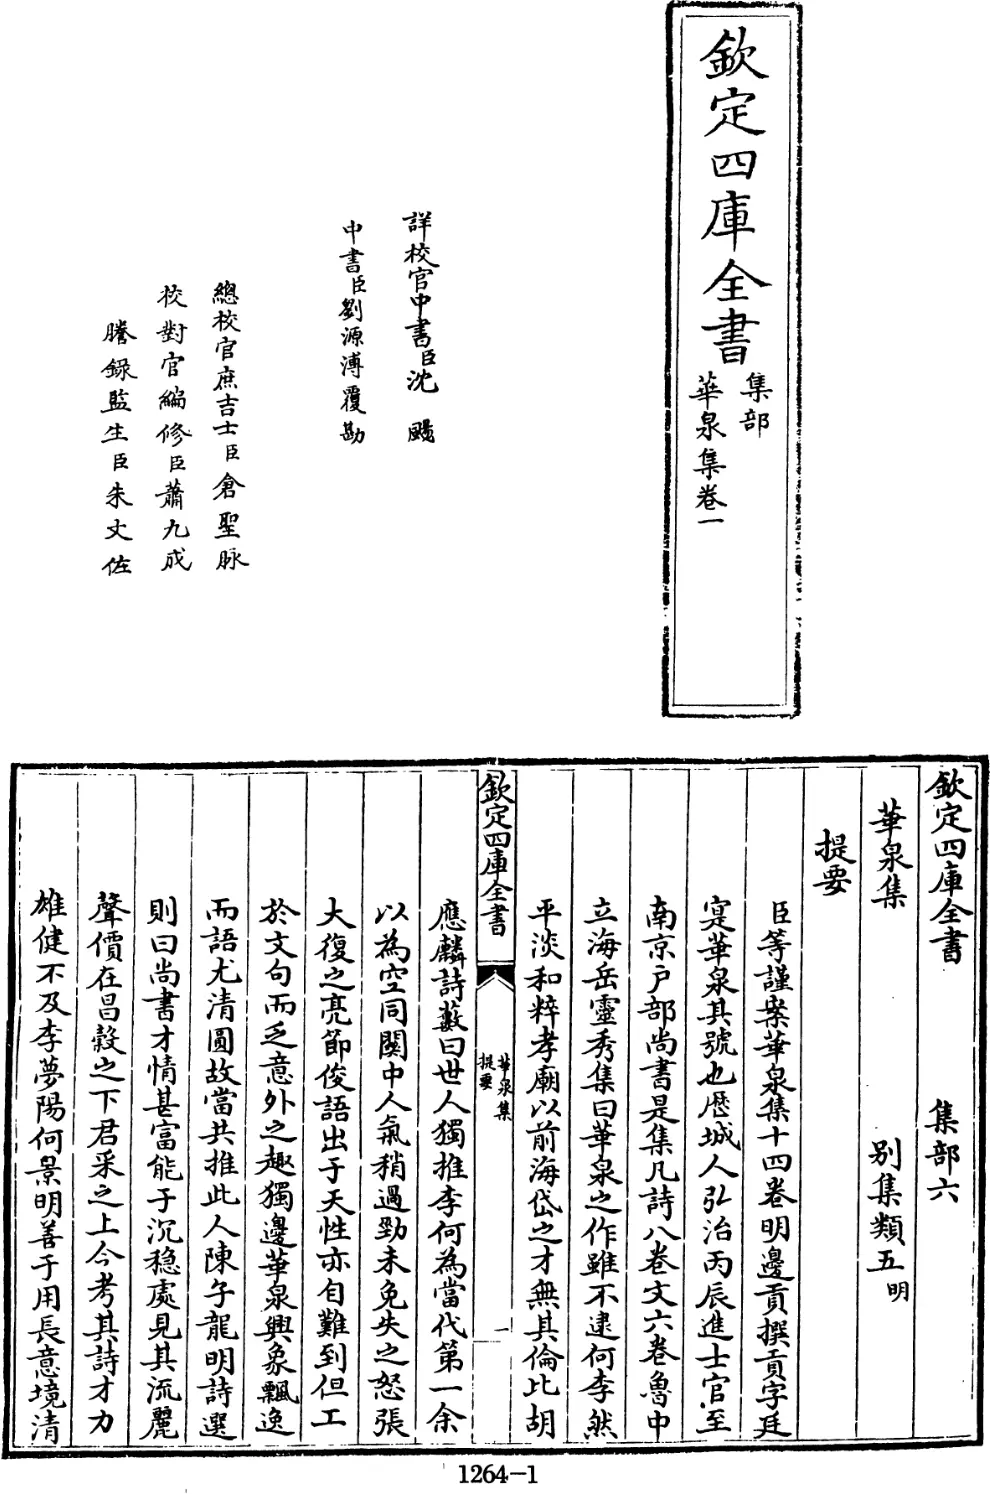 欽定四庫全書
集部
華泉集卷一
詳校官中書臣沈 颺
中書臣劉源溥覆勘
總校官庶吉士臣倉聖脉
校對官編修臣蕭九成
謄録監生臣朱文佐
欽定四庫全書 集部六
華泉集 别集類五明
提要
臣等謹案華泉集十四卷明邊貢撰貢字廷
寔華泉其號也歴城人弘治丙辰進士官至
南京户部尚書是集凡詩八卷文六卷魯中
立海岳靈秀集曰華泉之作雖不逮何李然
平淡和粹孝廟以前海岱之才無其倫比胡
欽定四庫全書
華泉集
提要
一
應麟詩藪曰世人獨推李何為當代第一余
以為空同關中人氣稍過勁未免失之怒張
大復之亮節俊語出于天性亦自難到但工
於文句而乏意外之趣獨邊華泉興象飄逸
而語尤清圓故當共推此人陳子龍明詩選
則曰尚書才情甚富能于沉穏處見其流麗
聲價在昌穀之下君采之上今考其詩才力
雄健不及李夢陽何景明善于用長意境清
1264-1